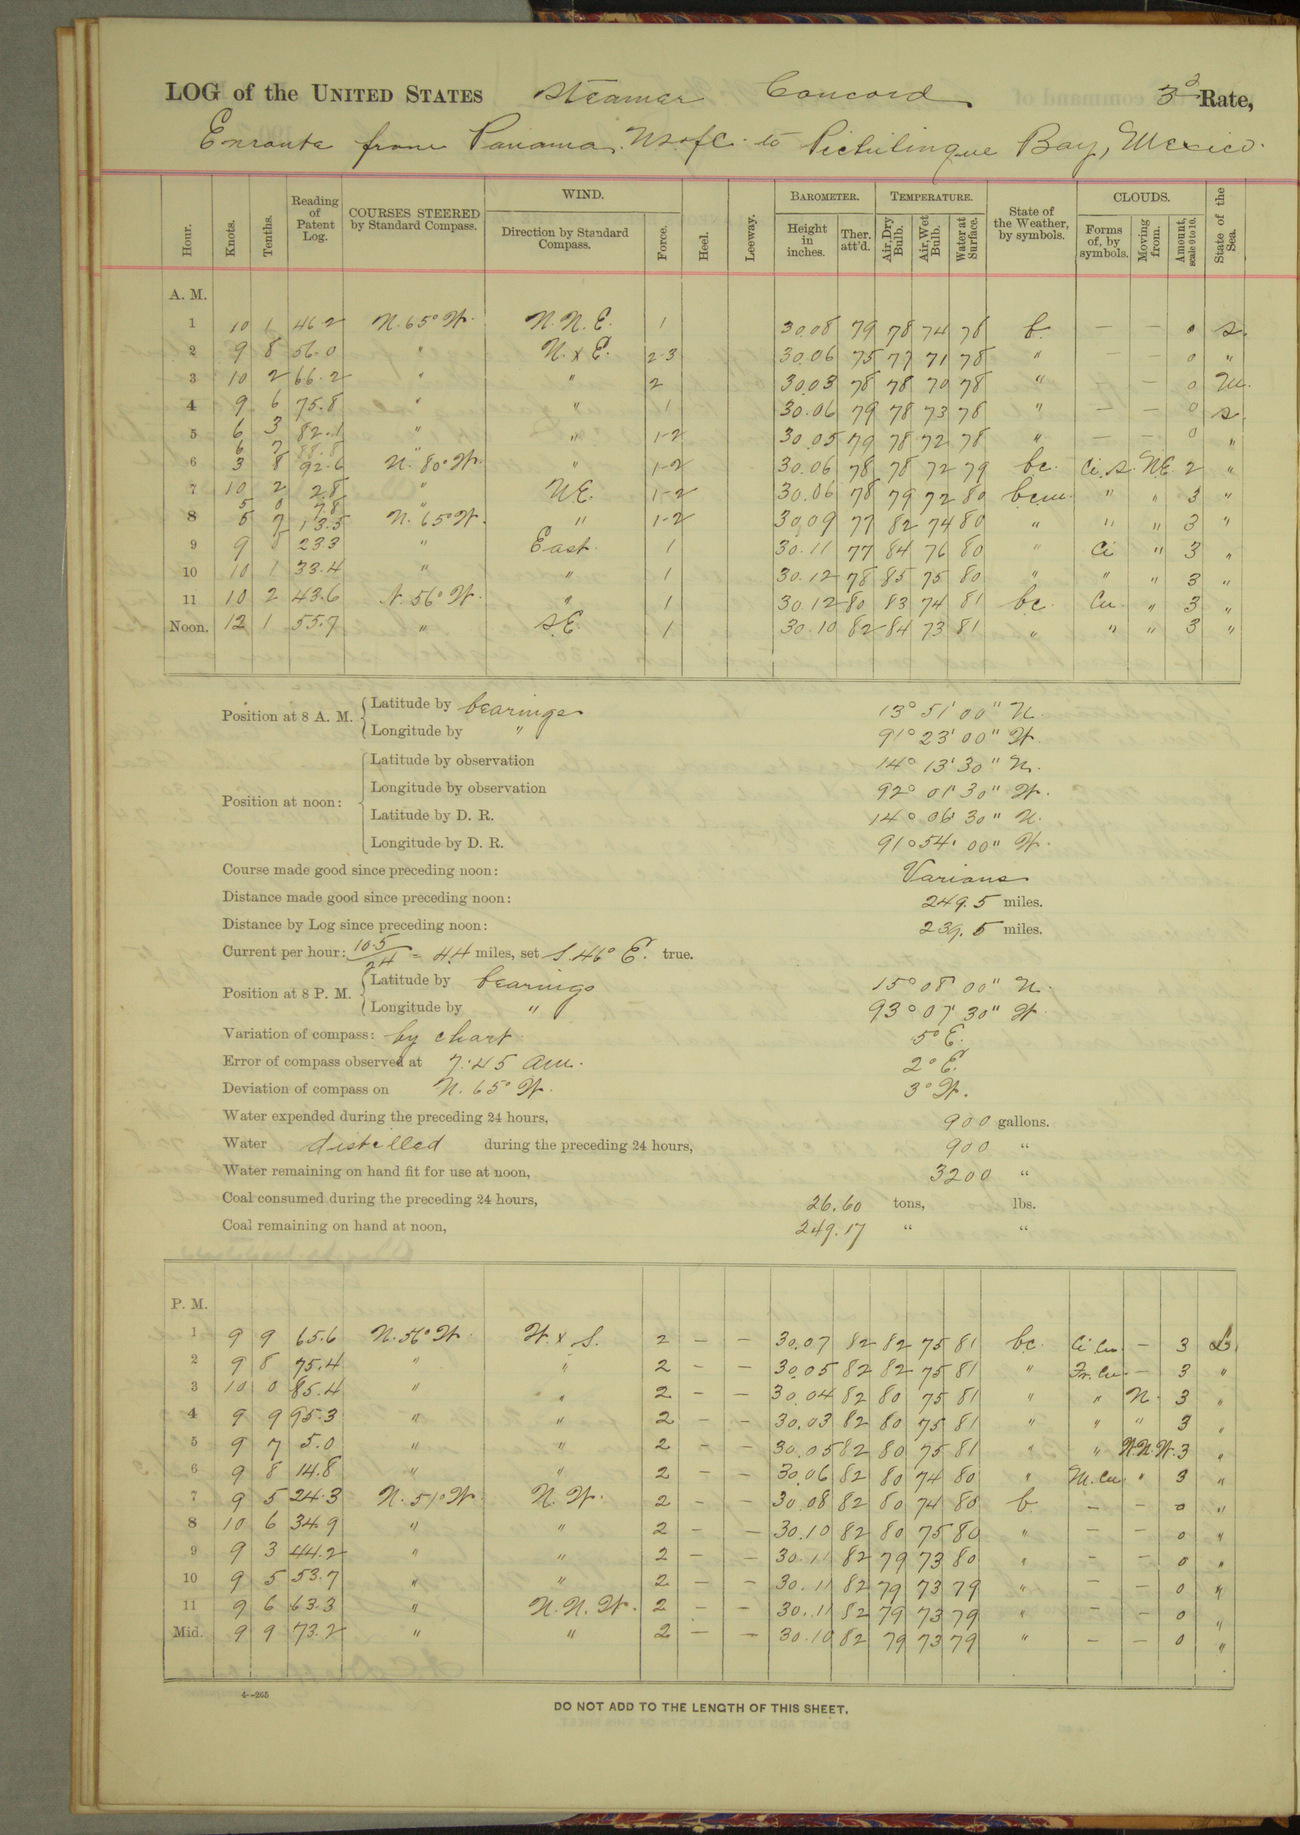 LOG of the UNITED STATES Steamer Concord 3d Rate,
Enroute from Panama, to Pichilinque Bay, Mexico.
Hour. Knots. Tenths. Reading of Patent Log. COURSES STEERED by Standard Compass. WIND. Direction by Standard Compass. Force. Heel. Leeway. BAROMETER. Height in inches. Ther. att'd. TEMPERATURE. Air, Dry Bulb. Air, Wet Bulb. Water at Surface. State of the Weather, by symbols. CLOUDS. Forms of, by symbols. Moving from. Amount, scale 0 to 10. State of the Sea.
A. M.
1 10 1 46.2 N. 65° W. N. N. E. 1 30.08 79 78 74 78 b. — — 0 S.
2 9 8 56.0 " N. x E. 2-3 30.06 75 77 71 78 " — — 0 "
3 10 2 66.2 " " 2 30.03 78 78 70 78 " — — 0 M.
4 9 6 75.8 " " 1 30.06 79 78 73 78 " — — 0 S.
5 6 3 82.1 " " 1-2 30.05 79 78 72 78 " — — 0 "
6 7 88.8 "
6 3 8 92.6 N. 80° W. " 1-2 30.06 78 78 72 79 bc. Ci. S. N.E. 2 "
7 10 2 2.8 " N.E. 1-2 30.06 78 79 72 80 bcm. " " 3 "
5 0 7.8 "
8 5 7 13.5 N. 65° W. " 1-2 30.09 77 82 74 80 " " " 3 "
9 9 8 23.3 " East. 1 30.11 77 84 76 80 " Ci " 3 "
10 10 1 33.4 " " 1 30.12 78 85 75 80 " " " 3 "
11 10 2 43.6 N. 56° W. " 1 30.12 80 83 74 81 bc. Cu. " 3 "
Noon. 12 1 55.7 " S.E. 1 30.10 82 84 73 81 " " " 3 "
Position at 8 A. M. Latitude by bearings 13° 51' 00" N.
Longitude by " 91° 23' 00" W.
Position at noon: Latitude by observation 14° 13' 30" N.
Longitude by observation 92° 01' 30" W.
Latitude by D. R. 14° 06' 30" N.
Longitude by D. R. 91° 54' 00" W.
Course made good since preceding noon: Various
Distance made good since preceding noon: 249.5 miles.
Distance by Log since preceding noon: 239.5 miles.
Current per hour: 10.5/24 = .44 miles, set S. 46° E. true.
Position at 8 P. M. Latitude by bearings 15° 08' 00" N.
Longitude by " 93° 07' 30" W.
Variation of compass: by chart 5° E.
Error of compass observed at 7:45 am. 2° E.
Deviation of compass on N. 65° W. 3° W.
Water expended during the preceding 24 hours, 900 gallons.
Water distilled during the preceding 24 hours, 900 "
Water remaining on hand fit for use at noon, 3200 "
Coal consumed during the preceding 24 hours, 26.60 tons, lbs.
Coal remaining on hand at noon, 249.17 " "
P. M.
1 9 9 65.6 N. 56° W. W. x S. 2 — — 30.07 82 82 75 81 bc. Ci Cu. — 3 S.
2 9 8 75.4 " " 2 — — 30.05 82 82 75 81 " Fr. Cu. — 3 "
3 10 0 85.4 " " 2 — — 30.04 82 80 75 81 " " N. 3 "
4 9 9 95.3 " " 2 — — 30.03 82 80 75 81 " " " 3 "
5 9 7 5.0 " " 2 — — 30.05 82 80 75 81 " " W.N.W. 3 "
6 9 8 14.8 " " 2 — — 30.06 82 80 74 80 " Cu. " 3 "
7 9 5 24.3 N. 51° W. N. W. 2 — — 30.08 82 80 74 80 b. — — 0 "
8 10 6 34.9 " " 2 — — 30.10 82 80 75 80 " — — 0 "
9 9 3 44.2 " " 2 — — 30.11 82 79 73 80 " — — 0 "
10 9 5 53.7 " " 2 — — 30.11 82 79 73 79 " — — 0 "
11 9 6 63.3 " N. N. W. 2 — — 30.11 82 79 73 79 " — — 0 "
Mid. 9 9 73.2 " " 2 — — 30.10 82 79 73 79 " — — 0 "
4—265
DO NOT ADD TO THE LENGTH OF THIS SHEET.